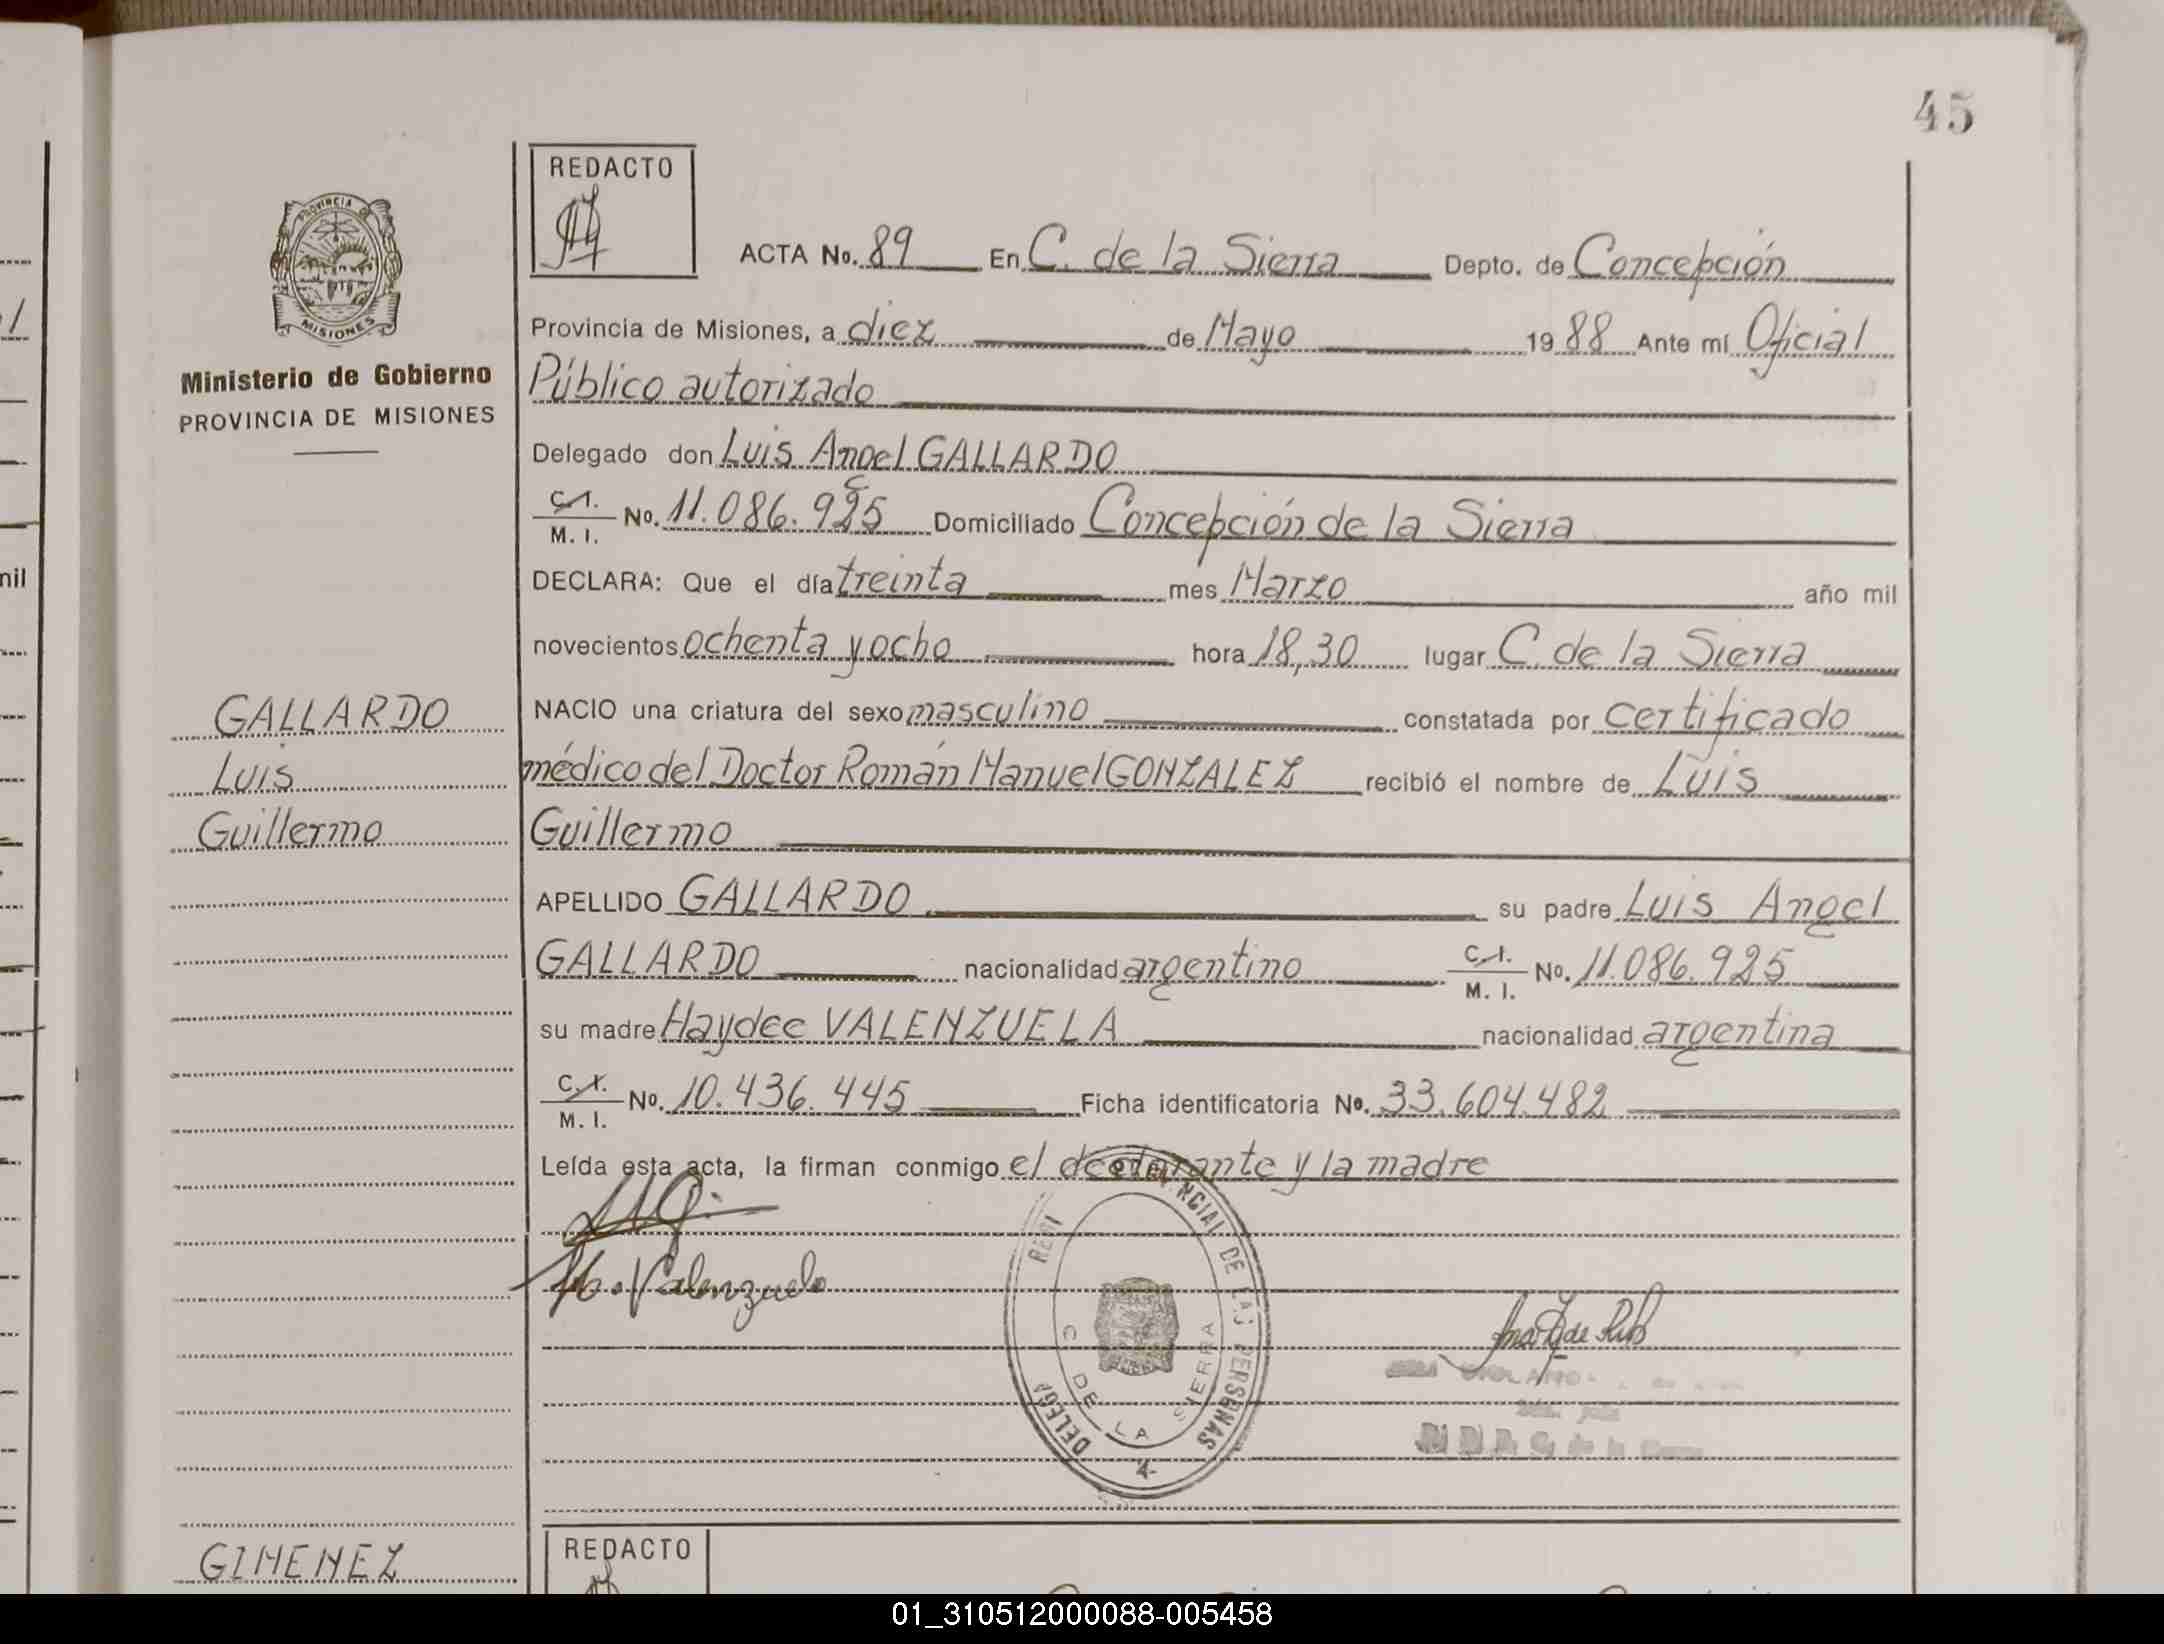 45
REDACTO
PROVINCIA DE
MISIONES
Ministerio de Gobierno
PROVINCIA DE MISIONES
ACTA No. 89 En C. de la Sierra Depto. de Concepción
Provincia de Misiones, a diez de Mayo 1988 Ante mí Oficial
Público autorizado
Delegado don Luis Angel GALLARDO
C.I. M. I. No. 11.086.925 Domiciliado Concepción de la Sierra
DECLARA: Que el día treinta mes Marzo año mil
novecientos ochenta y ocho hora 18,30 lugar C. de la Sierra
GALLARDO
Luis
Guillermo
NACIO una criatura del sexo masculino constatada por certificado
médico del Doctor Román Manuel GONZALEZ recibió el nombre de Luis
Guillermo
APELLIDO GALLARDO su padre Luis Angel
GALLARDO nacionalidad argentino C.I. M. I. No. 11.086.925
su madre Haydee VALENZUELA nacionalidad argentina
C.I. M. I. No. 10.436.445 Ficha identificatoria No. 33.604.482
Leída esta acta, la firman conmigo el declarante y la madre
Valenzuela
DE LAS PERSONAS
C DE LA SIERRA
GIMENEZ
REDACTO
nil
01_310512000088-005458